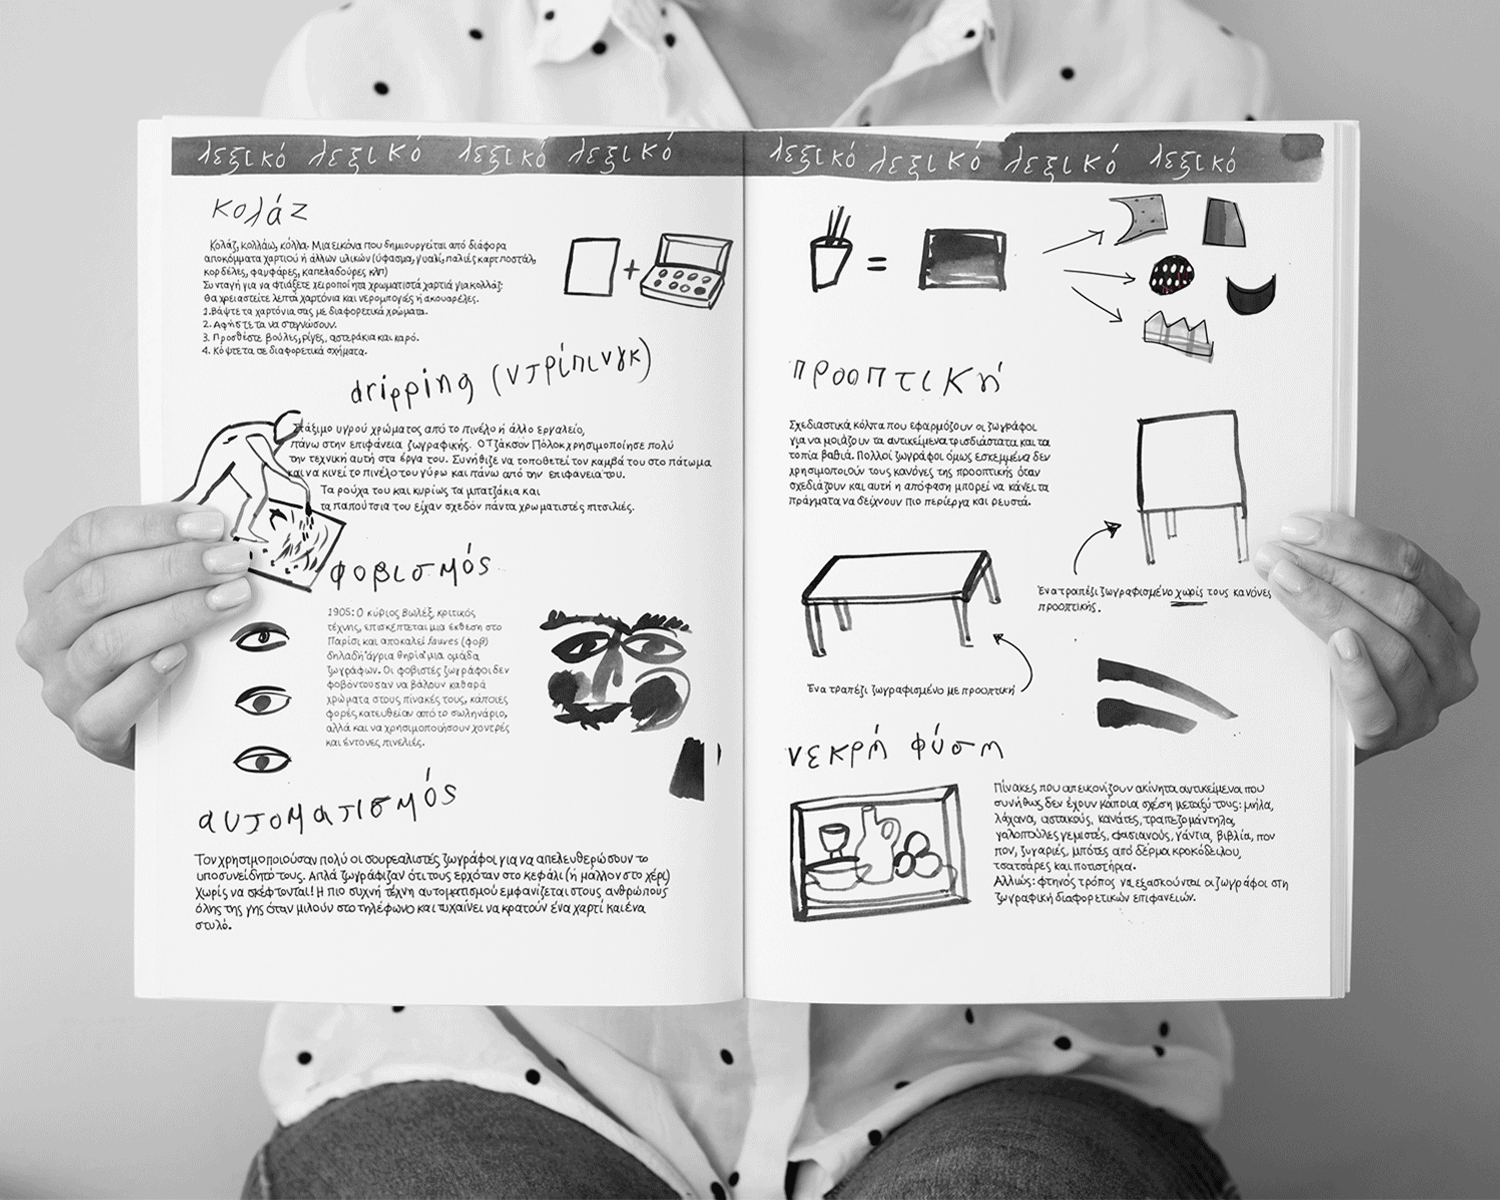 λεξικό λεξικό λεξικό λεξικό
κολάζ
Κολάζ, κολλάω, κόλλα. Μια εικόνα που δημιουργείται από διάφορα
αποκόμματα χαρτιού ή άλλων υλικών (ύφασμα, γυαλί, παλιές καρτ ποστάλ,
κορδέλες, φανφάρες, καπελαδούρες κλπ)
Συνταγή για να φτιάξετε χειροποίητα χρωματιστά χαρτιά για κολλάζ:
Θα χρειαστείτε λεπτά χαρτόνια και νερομπογιές ή ακουαρέλες.
1. Βάψτε τα χαρτόνια σας με διαφορετικά χρώματα.
2. Αφήστε τα να στεγνώσουν.
3. Προσθέστε βούλες, ρίγες, αστεράκια και καρό.
4. Κόψτε τα σε διαφορετικά σχήματα.
+
dripping (ντρίπινγκ)
Στάξιμο υγρού χρώματος από το πινέλο ή άλλο εργαλείο,
πάνω στην επιφάνεια ζωγραφικής. Ο Τζάκσον Πόλοκ χρησιμοποίησε πολύ
την τεχνική αυτή στα έργα του. Συνήθιζε να τοποθετεί τον καμβά του στο πάτωμα
και να κινεί το πινέλο του γύρω και πάνω από την επιφανεια του.
Τα ρούχα του και κυρίως τα μπατζάκια και
τα παπούτσια του είχαν σχεδόν πάντα χρωματιστές πιτσιλιές.
φοβισμός
1905: Ο κύριος Βωλέξ, κριτικός
τέχνης, επισκέπτεται μια έκθεση στο
Παρίσι και αποκαλεί fauves (φοβ)
δηλαδή άγρια θηρία μια ομάδα
ζωγράφων. Οι φοβιστές ζωγράφοι δεν
φοβόντουσαν να βάλουν καθαρά
χρώματα στους πίνακές τους, κάποιες
φορές κατευθείαν από το σωληνάριο,
αλλά και να χρησιμοποιήσουν χοντρές
και έντονες πινελιές.
αυτοματισμός
Τον χρησιμοποιούσαν πολύ οι σουρεαλιστές ζωγράφοι για να απελευθερώσουν το
υποσυνείδητό τους. Απλά ζωγράφιζαν ότι τους ερχόταν στο κεφάλι (ή μάλλον στο χέρι)
χωρίς να σκέφτονται! Η πιο συχνή τέχνη αυτοματισμού εμφανίζεται στους ανθρώπους
όλης της γης όταν μιλούν στο τηλέφωνο και τυχαίνει να κρατούν ένα χαρτί και ένα
στυλό.
λεξικό λεξικό λεξικό λεξικό
=
προοπτική
Σχεδιαστικά κόλπα που εφαρμόζουν οι ζωγράφοι
για να μοιάζουν τα αντικείμενα τρισδιάστατα και τα
τοπία βαθιά. Πολλοί ζωγράφοι όμως εσκεμμένα δεν
χρησιμοποιούν τους κανόνες της προοπτικής όταν
σχεδιάζουν και αυτή η απόφαση μπορεί να κάνει τα
πράγματα να δείχνουν πιο περίεργα και ρευστά.
Ένα τραπέζι ζωγραφισμένο χωρίς τους κανόνες
προοπτικής.
Ένα τραπέζι ζωγραφισμένο με προοπτική
νεκρή φύση
Πίνακες που απεικονίζουν ακίνητα αντικείμενα που
συνήθως δεν έχουν κάποια σχέση μεταξύ τους: μήλα,
λάχανα, αστακούς, κανάτες, τραπεζομάντηλα,
γαλοπούλες γεμιστές, φασιανούς, γάντια, βιβλία, πον
πον, ζυγαριές, μπότες από δέρμα κροκόδειλου,
τσατσάρες και ποτιστήρια.
Αλλιώς: φτηνός τρόπος να εξασκούνται οι ζωγράφοι στη
ζωγραφική διαφορετικών επιφανειών.